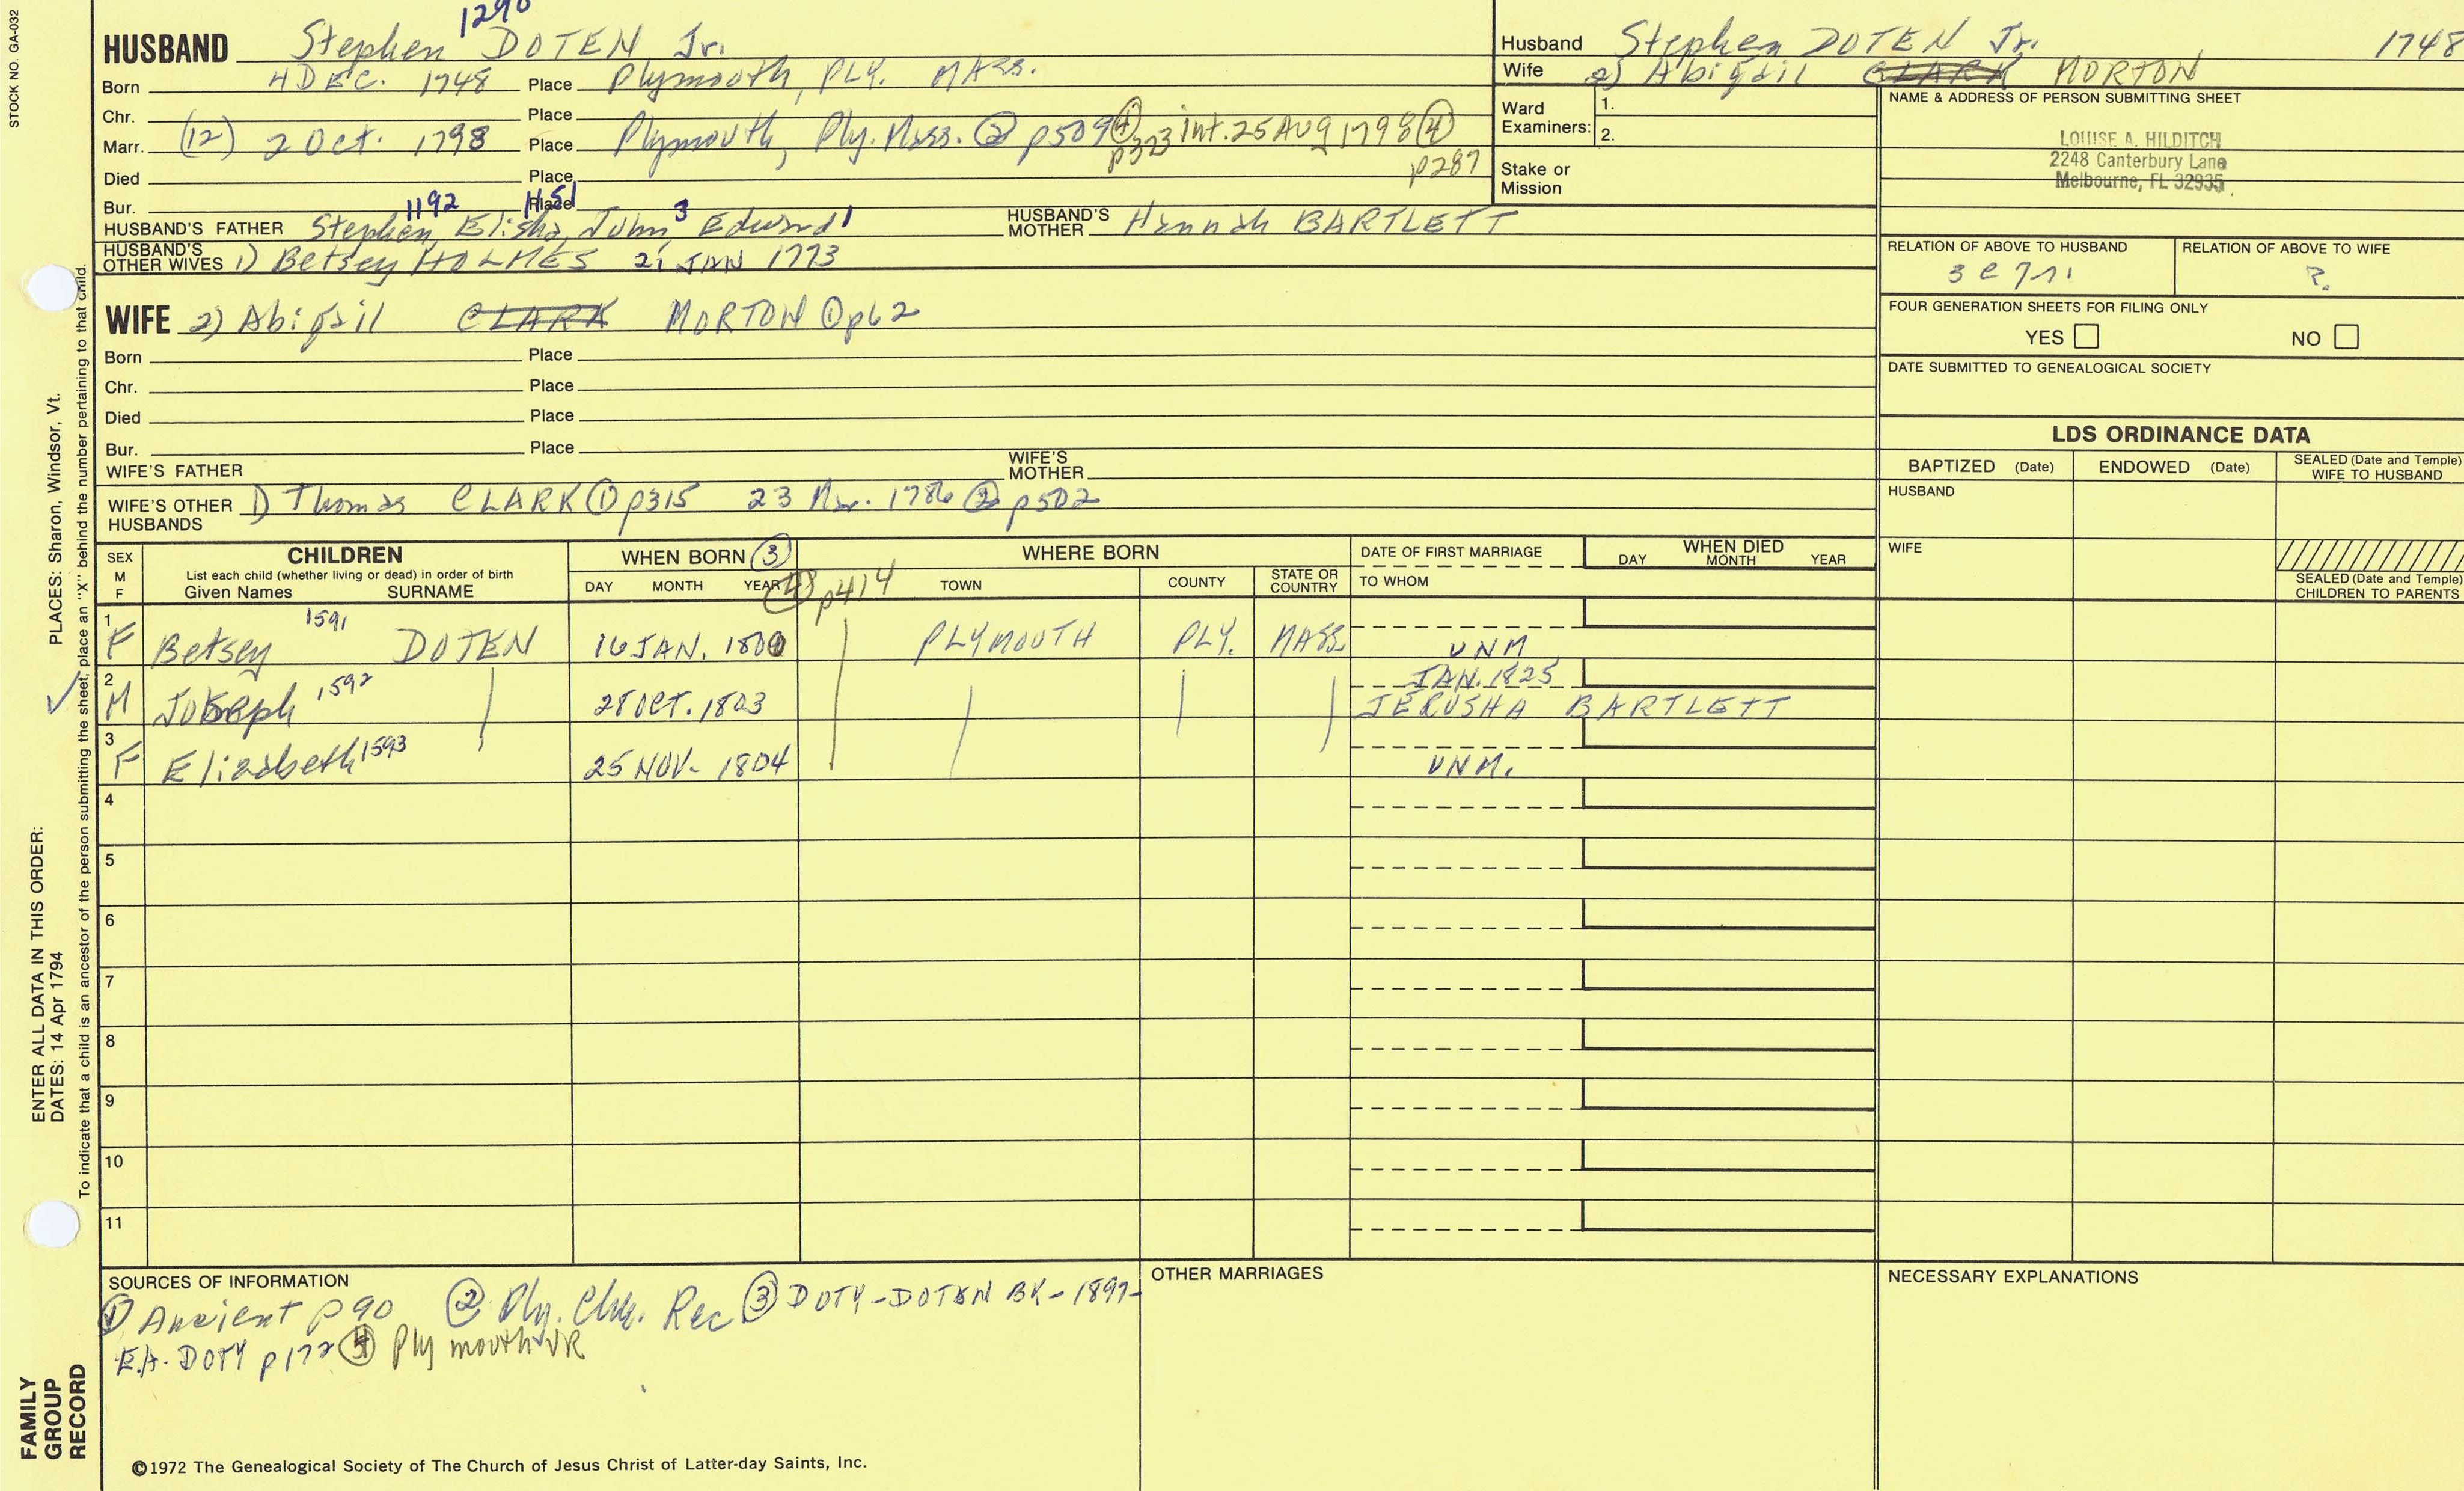 STOCK NO. GA-032
1290
HUSBAND Stephen DOTEN Jr.
Born 4 DEC. 1748 Place Plymouth, PLY. MASS.
Chr. Place
Marr. (12) 2 Oct. 1798 Place Plymouth, Ply. Mass. ② p509 ④ p373 int. 25 AUG 1798 ④ p287
Died Place
Bur. Place
1192 1151 3 1
HUSBAND'S FATHER Stephen, Elisha, John, Edward
HUSBAND'S MOTHER Hannah BARTLETT
HUSBAND'S OTHER WIVES 1) Betsey HOLMES 21 JAN 1773
WIFE 2) Abigail CLARK MORTON ① p62
Born Place
Chr. Place
Died Place
Bur. Place
WIFE'S FATHER
WIFE'S MOTHER
WIFE'S OTHER HUSBANDS 1) Thomas CLARK ① p315 23 Mar. 1786 ② p502
Husband Stephen DOTEN Jr. 1748
Wife 2) Abigail CLARK MORTON
Ward Examiners: 1.
2.
Stake or Mission
NAME & ADDRESS OF PERSON SUBMITTING SHEET
LOUISE A. HILDITCH
2248 Canterbury Lane
Melbourne, FL 32935
RELATION OF ABOVE TO HUSBAND
RELATION OF ABOVE TO WIFE
?
FOUR GENERATION SHEETS FOR FILING ONLY
YES NO
DATE SUBMITTED TO GENEALOGICAL SOCIETY
LDS ORDINANCE DATA
BAPTIZED (Date) ENDOWED (Date) SEALED (Date and Temple) WIFE TO HUSBAND
HUSBAND
WIFE
SEALED (Date and Temple) CHILDREN TO PARENTS
SEX M F
CHILDREN
List each child (whether living or dead) in order of birth
Given Names SURNAME
WHEN BORN ③
DAY MONTH YEAR ④ p414
WHERE BORN
TOWN COUNTY STATE OR COUNTRY
DATE OF FIRST MARRIAGE
TO WHOM
WHEN DIED
DAY MONTH YEAR
1 F Betsey 1591 DOTEN 16 JAN. 1800 PLYMOUTH PLY. MASS. UNM
2 M Joseph 1592 28 OCT. 1803 JAN. 1825
JERUSHA BARTLETT
3 F Elizabeth 1593 25 NOV. 1804 UNM.
4
5
6
7
8
9
10
11
SOURCES OF INFORMATION
① Ancient p90 ② Ply. Chh. Rec ③ DOTY-DOTEN BK-1897-
E.A. DOTY p172 ④ Plymouth VR
OTHER MARRIAGES
NECESSARY EXPLANATIONS
©1972 The Genealogical Society of The Church of Jesus Christ of Latter-day Saints, Inc.
FAMILY GROUP RECORD
ENTER ALL DATA IN THIS ORDER:
DATES: 14 Apr 1794
PLACES: Sharon, Windsor, Vt.
To indicate that a child is an ancestor of the person submitting the sheet, place an "X" behind the number pertaining to that child.